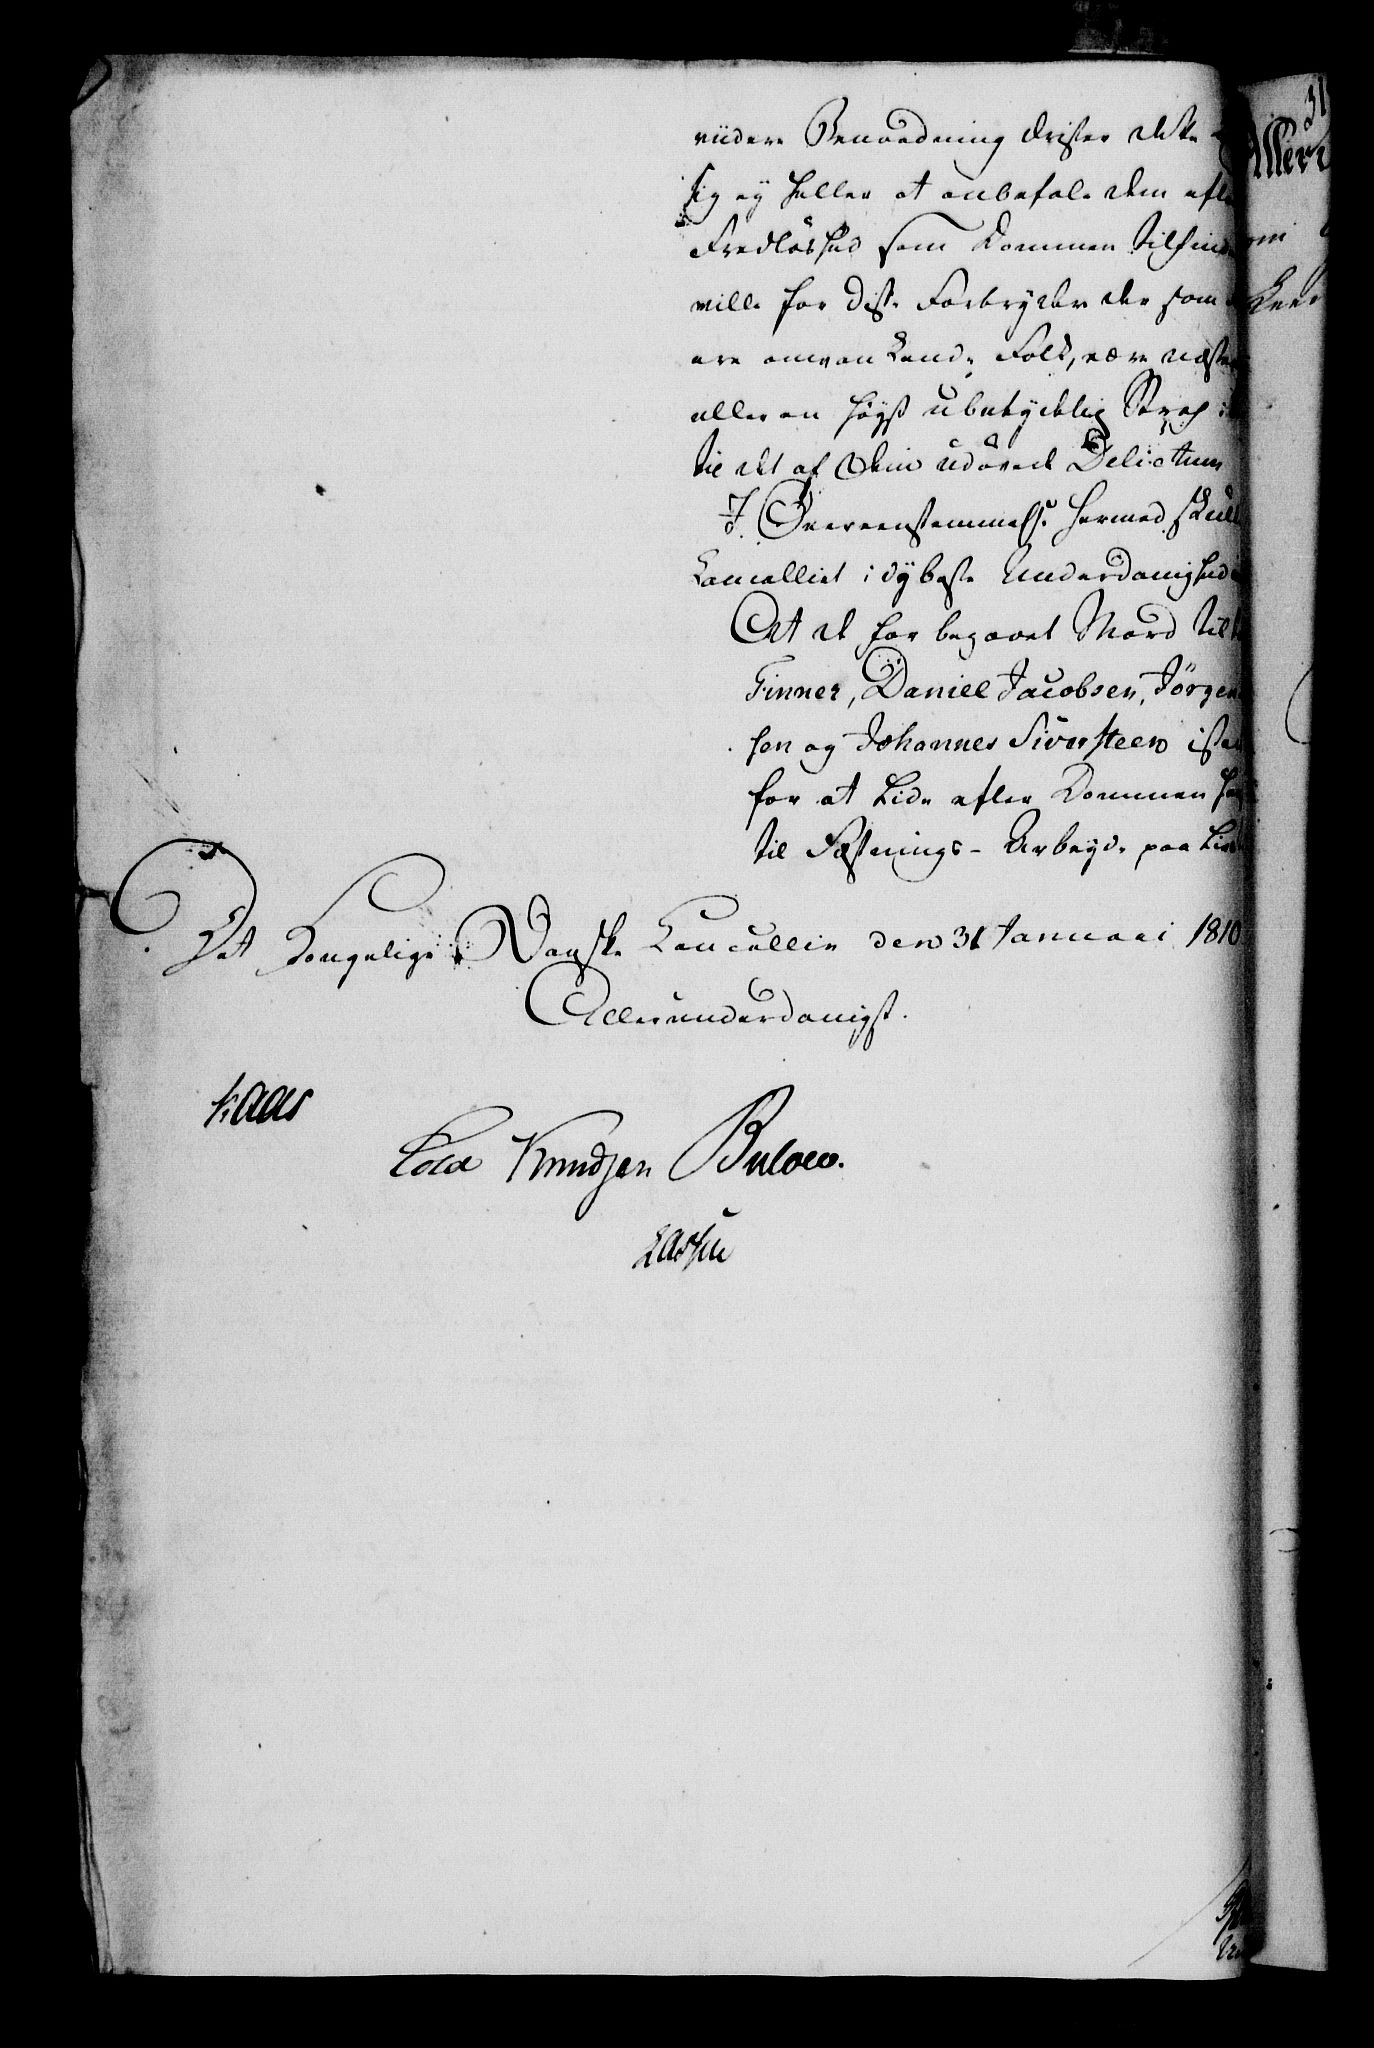 viidere Benaadning drister dette
sig ej heller at anbefale dem efte
Fredløshed som Dommen tilfinde
ville for disse Forbrydere der som
ere omvankende Folk, være næsten
eller en høyst ubetydelig Straf i
til det af dem udøvede Delictum
I Overeensstemmelse hermed skulle
Cancelliet i dybeste Underdanighed
At de for begaaet Mord til
Finner, Daniel Jacobsen, Jörgen
sen og Johannes Siversteen istæ
for at lide efter Dommen hen
til Fæstnings-Arbeyde paa Livs
Det Kongelige Danske Cancellie den 31 Januari 1810
Allerunderdanigst.
Kaas
Cold Knudsen Bülow.
Lassen